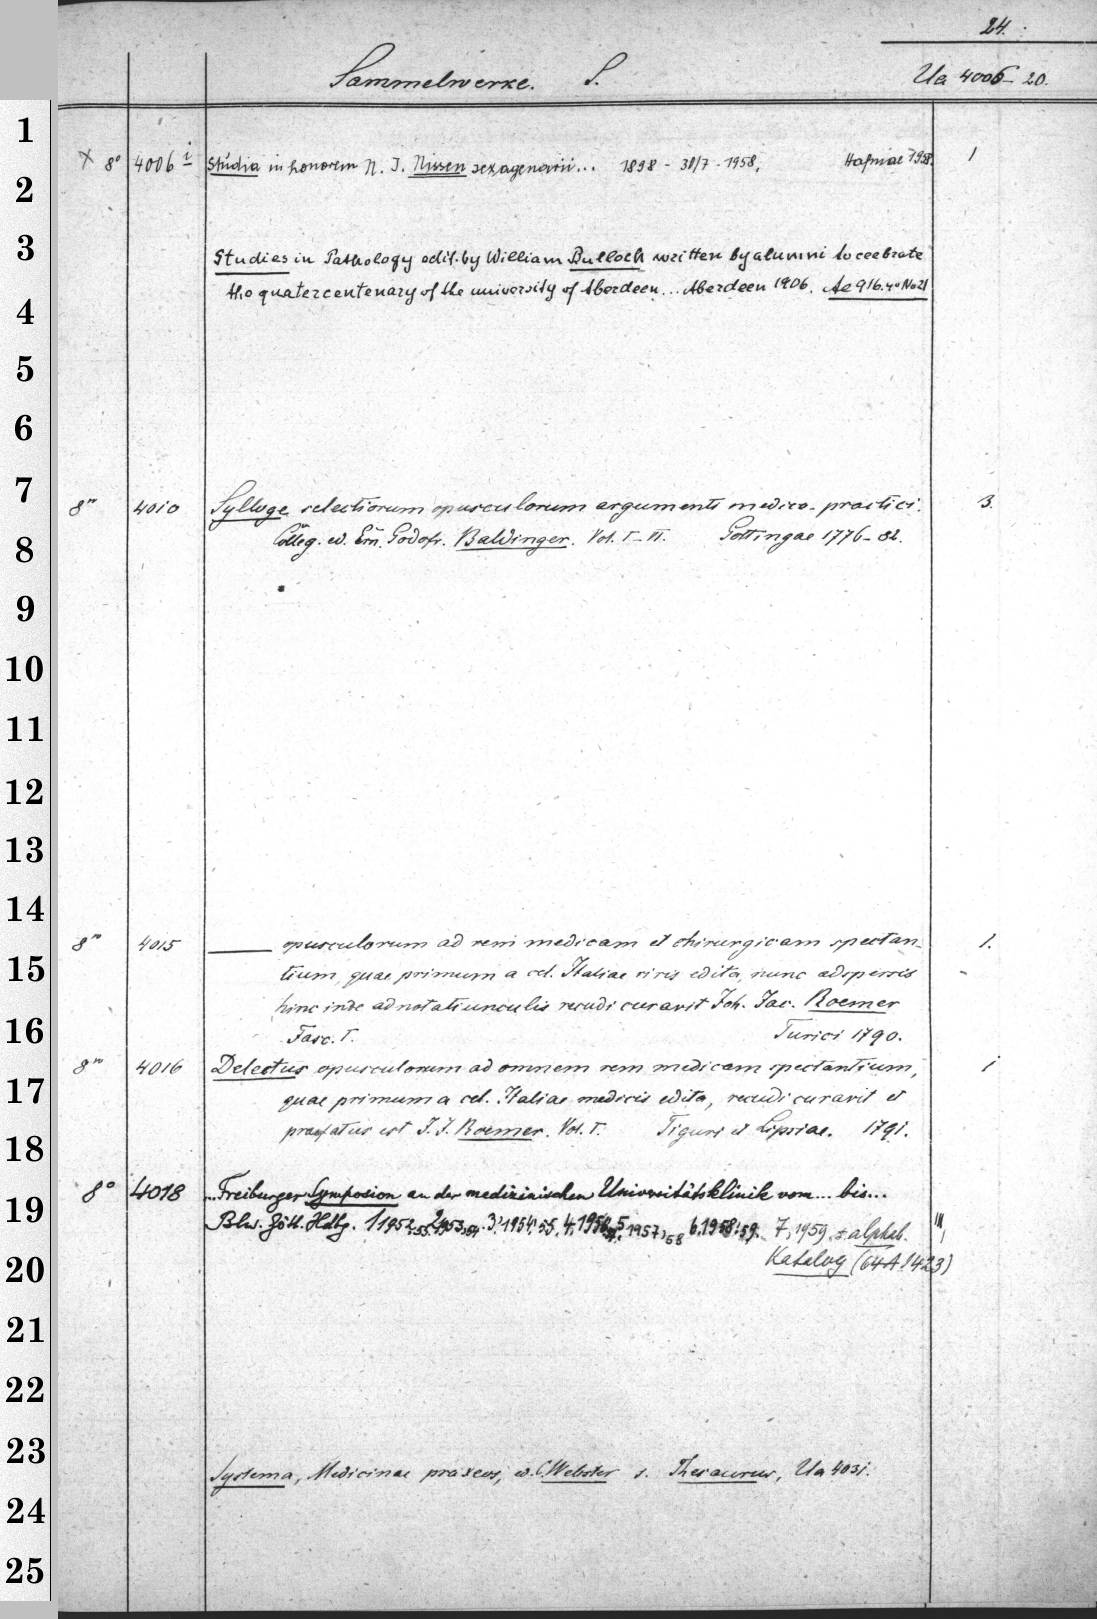 24.
Sammelwerke. S. Ua 4006-20.
1
x 8° 4006 i Studia in honorem N. J. Nissen sexagenarii... 1898 - 30/7 - 1958, Hafniae 1958. 1
2
3
Studies in Pathology edit. by William Bulloch written by alumni to ceebrate
the quatercentenary of the university of Aberdeen... Aberdeen 1906. Ae 916.4° No 21
4
5
6
7
8° 4010 Sylloge selectiorum opusculorum argumenti medico-practici. 3.
Colleg. ed. Ern. Godofr. Baldinger. Vol. I-VI. Gottingae 1776-82.
8
9
10
11
12
13
14
8° 4015 ——— opusculorum ad rem medicam et chirurgicam spectan- 1.
tium, quae primum a cel. Italiae viris edita, nunc adspersis
15
hinc inde adnotatiunculis recudi curavit Joh. Jac. Roemer
16
Fasc. I. Turici 1790.
8° 4016 Delectus opusculorum ad omnem rem medicam spectantium, 1
17
quae primum a cel. Italiae medicis edita, recudi curavit et
praefatus est J. J. Roemer. Vol. I. Tiguri et Lipsiae. 1791.
18
8° 4018 ...Freiburger Symposion an der medizinischen Universitätsklinik vom... bis...
19
Bln. Gött. Hdbg. 1 1952. 2 1953,54. 3, 1954,55. 4, 1956. 5, 1957,58 6, 1958,59. 7, 1959 s. alphab.
Katalog (64 A 1423)
20
21
22
23
Systema, Medicinae praxeos, ed. C. Webster s. Thesaurus, Ua 4031.
24
25